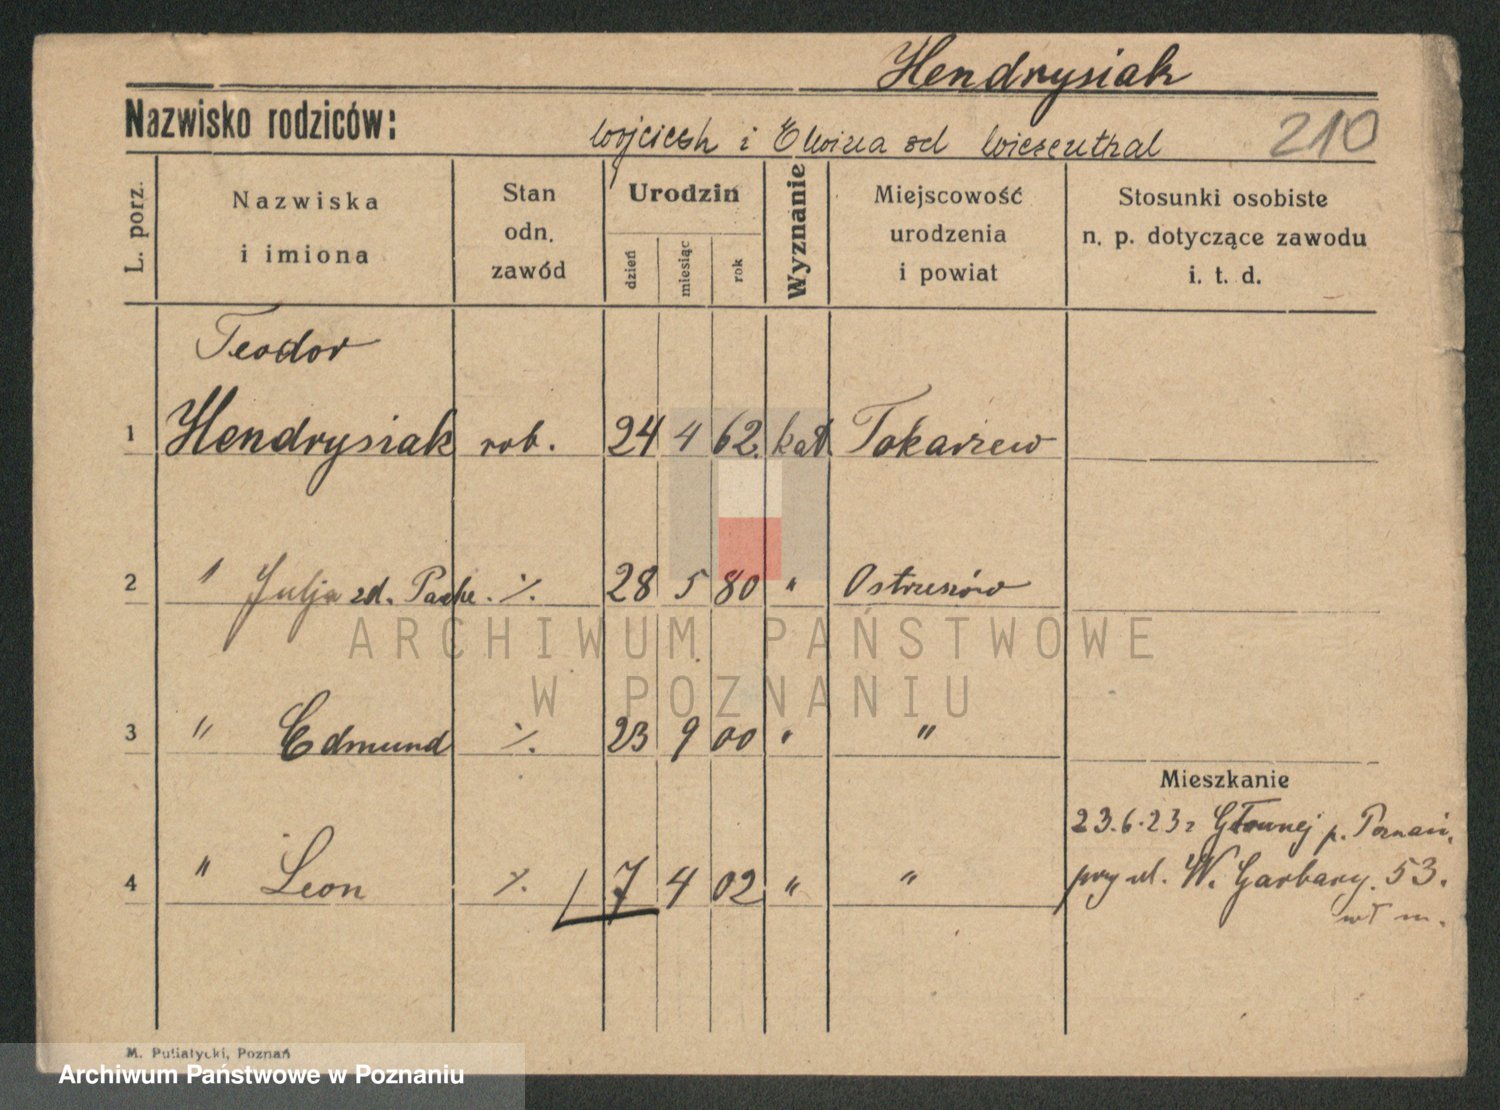 Hendrysiak
Nazwisko rodziców:
Wojciech i Elwira zd Wiezenthal
210
L. porz.
Nazwiska
i imiona
Stan
odn.
zawód
Urodzin
dzień
miesiąc
rok
Wyznanie
Miejscowość
urodzenia
i powiat
Stosunki osobiste
n. p. dotyczące zawodu
i. t. d.
Teodor
1 Hendrysiak rob. 24 4 62. kat. Tokarzew
2 " Julja zd. Pache. ·/. 28 5 80 " Ostrzeszów
ARCHIWUM PAŃSTWOWE
W POZNANIU
3 " Edmund ·/. 23 9 00 " "
Mieszkanie
23.6.23 z Głównej p. Poznań,
4 " Leon ·/. 7 4 02 " " przy ul. W. Garbary. 53.
wł m.
M. Putiatycki, Poznań
Archiwum Państwowe w Poznaniu